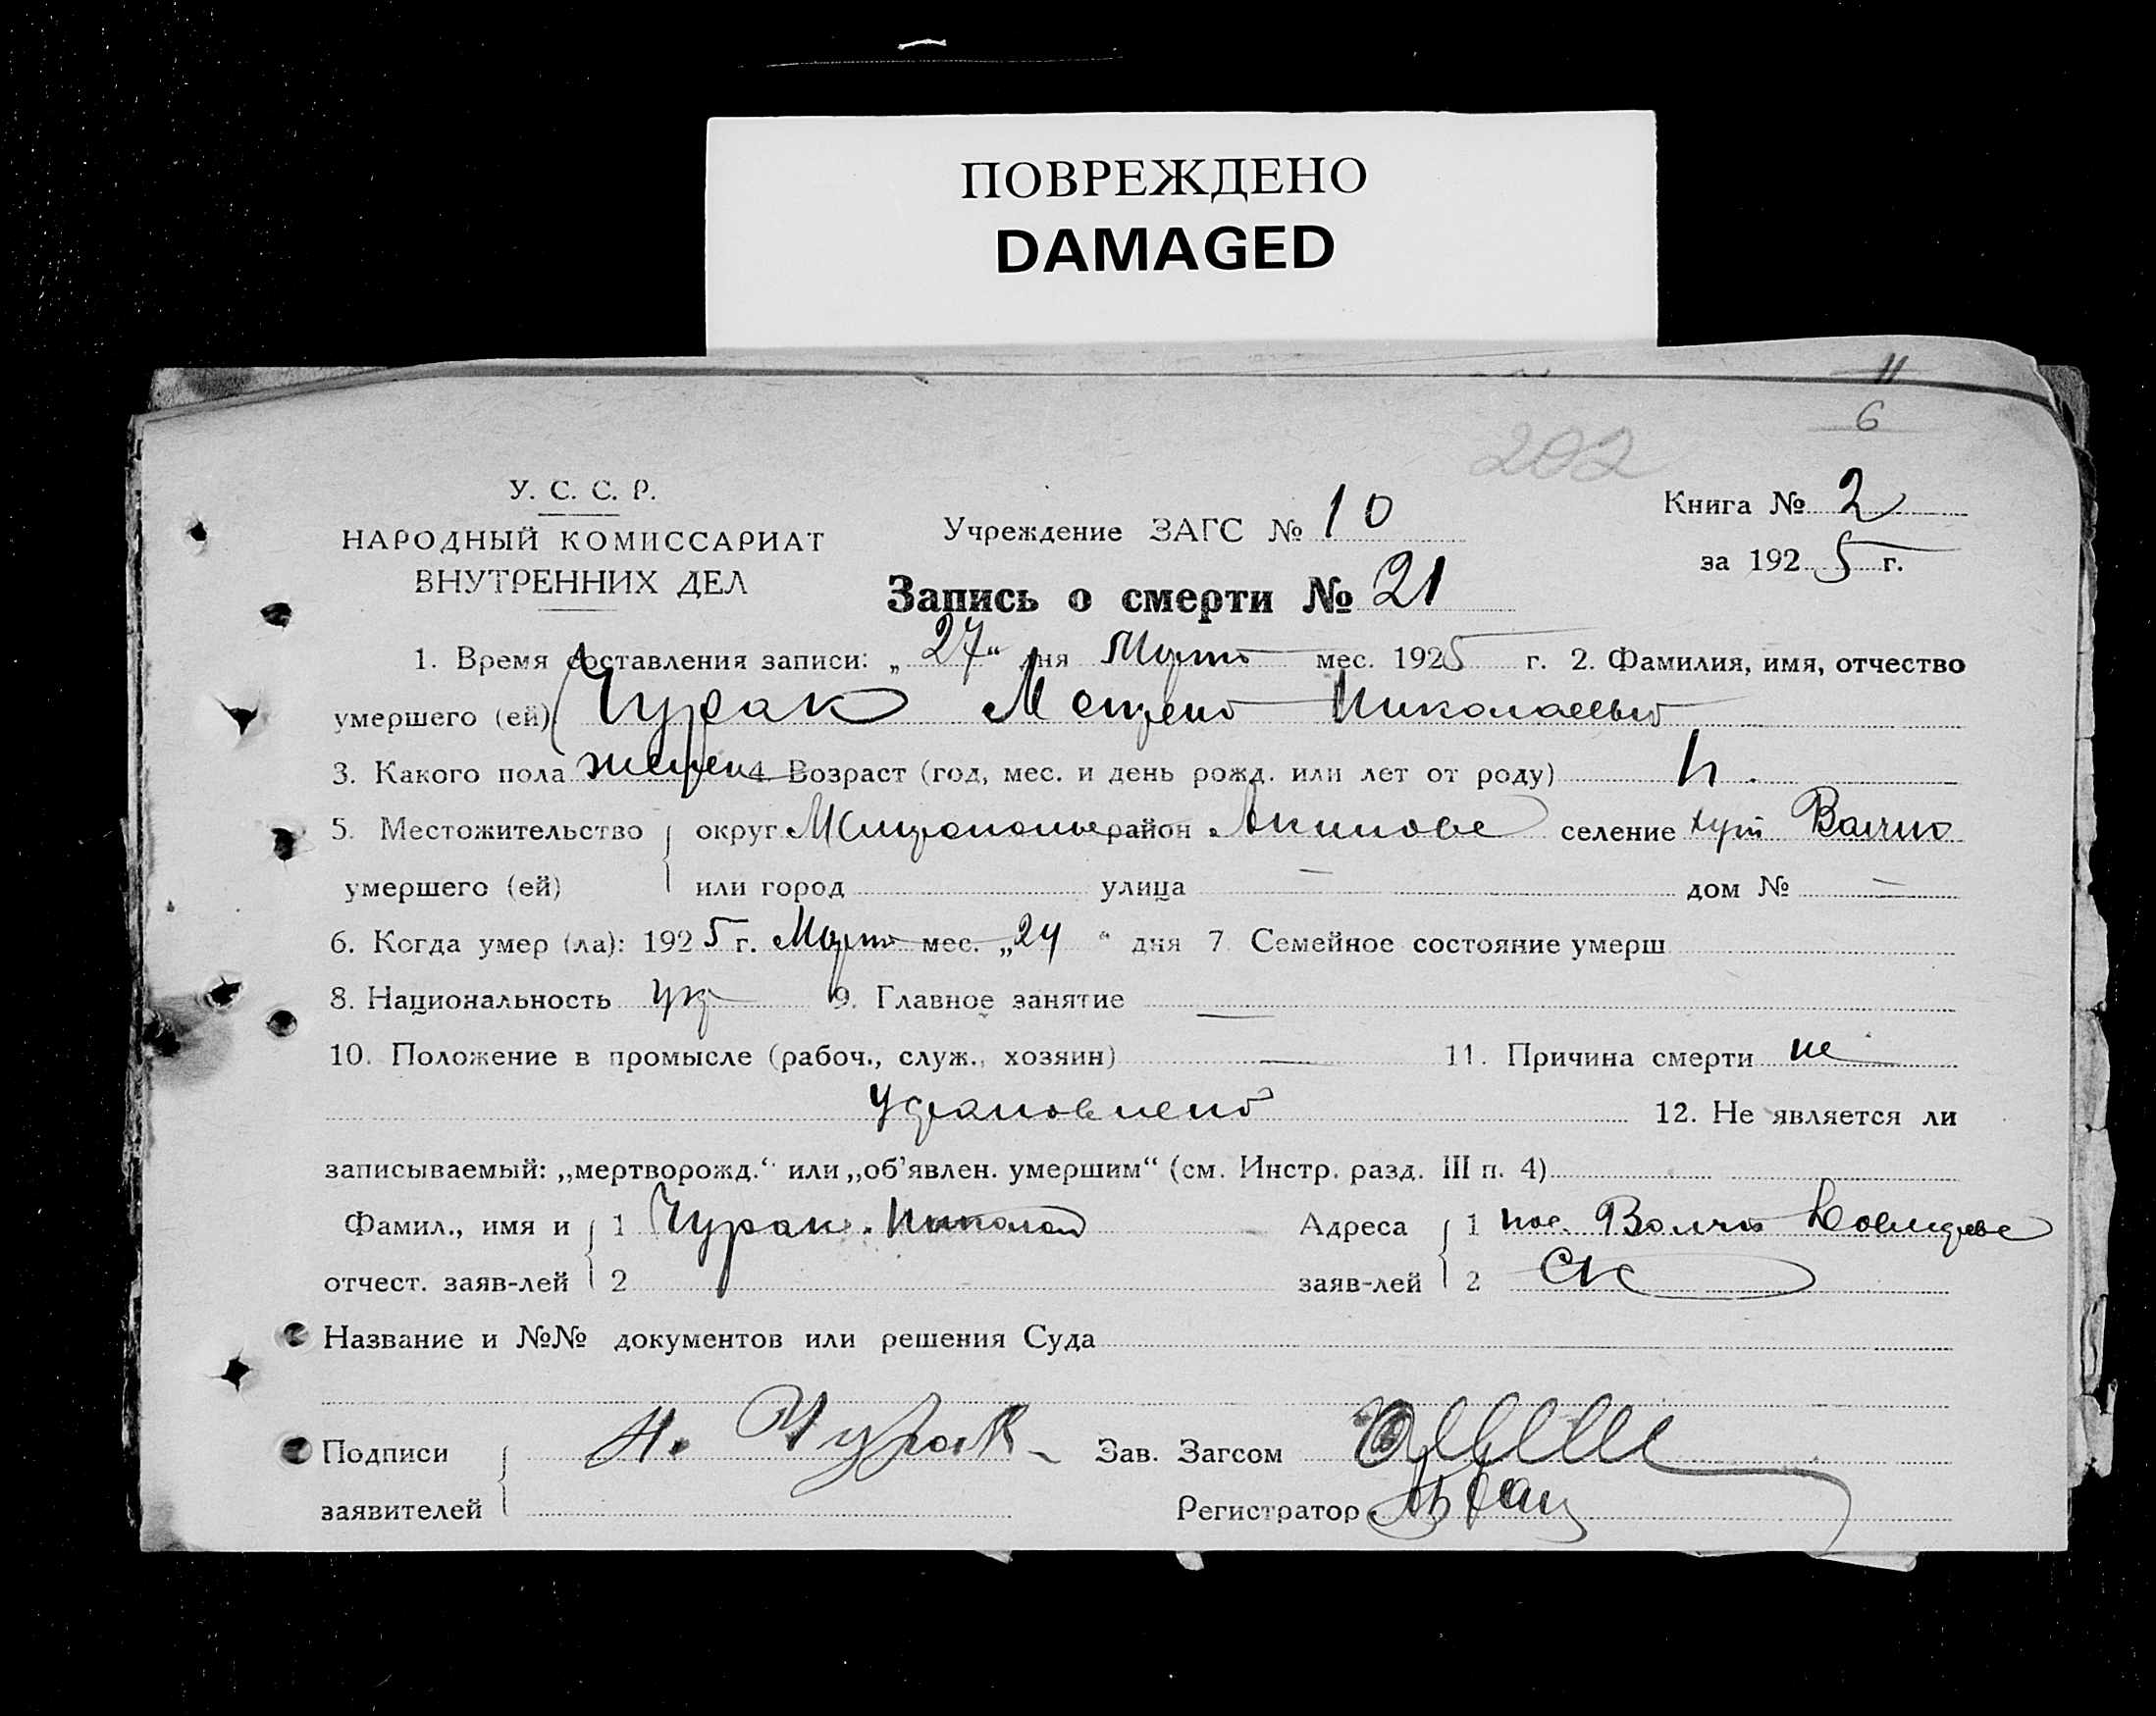 ПОВРЕЖДЕНО
DAMAGED
11
6
202
У. С. С. Р.
НАРОДНЫЙ КОМИССАРИАТ
ВНУТРЕННИХ ДЕЛ
Учреждение ЗАГС № 10
Книга № 2
за 1925 г.
Запись о смерти № 21
1. Время составления записи: „27“ дня Марта мес. 1925 г. 2. Фамилия, имя, отчество
умершего (ей) Чурак Николаевна
3. Какого пола женск 4. Возраст (год, мес. и день рожд. или лет от роду)
5. Местожительство округ район Акимове селение хут Волчно
умершего (ей) или город улица — дом № —
6. Когда умер (ла): 1925 г. Марта мес. „24“ дня 7. Семейное состояние умерш
8. Национальность укр 9. Главное занятие —
10. Положение в промысле (рабоч., служ., хозяин) — 11. Причина смерти не
установлено 12. Не является ли
записываемый: „мертворожд.“ или „об'явлен. умершим“ (см. Инстр. разд. III п. 4)
Фамил., имя и 1 Чурак Николай Адреса 1 пос.
отчест. заяв-лей 2 заяв-лей 2
Название и №№ документов или решения Суда
Подписи Н. Чурак Зав. Загсом
заявителей Регистратор